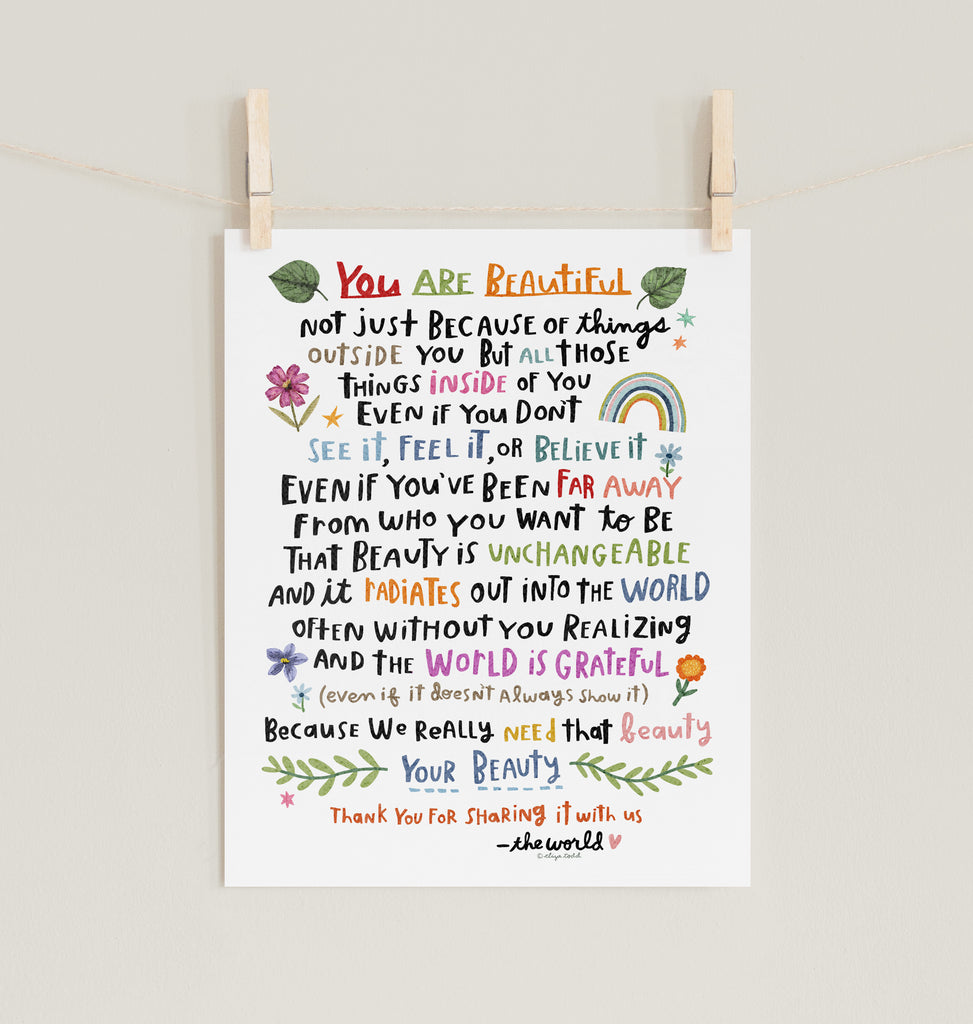 You ARE BEAUTIFUL
NOT JUST BECAUSE OF things
OUTSIDE YOU BUT ALL THOSE
THINGS INSIDE OF YOU
EVEN IF YOU DON'T
SEE IT, FEEL IT, OR BELIEVE IT
EVEN IF YOU'VE BEEN FAR AWAY
FROM WHO YOU WANT to BE
THAT BEAUTY IS UNCHANGEABLE
AND it rADIATES OUT INTO THE WORLD
OFTEN WITHOUT YOU REALIZING
AND THE WORLD IS GRATEFUL
(even if it doesn't Always show it)
Because We Really NEEd that beauty
YOUR BEAUTY
Thank You FOR SHARING it with us
-the world
© eliza todd